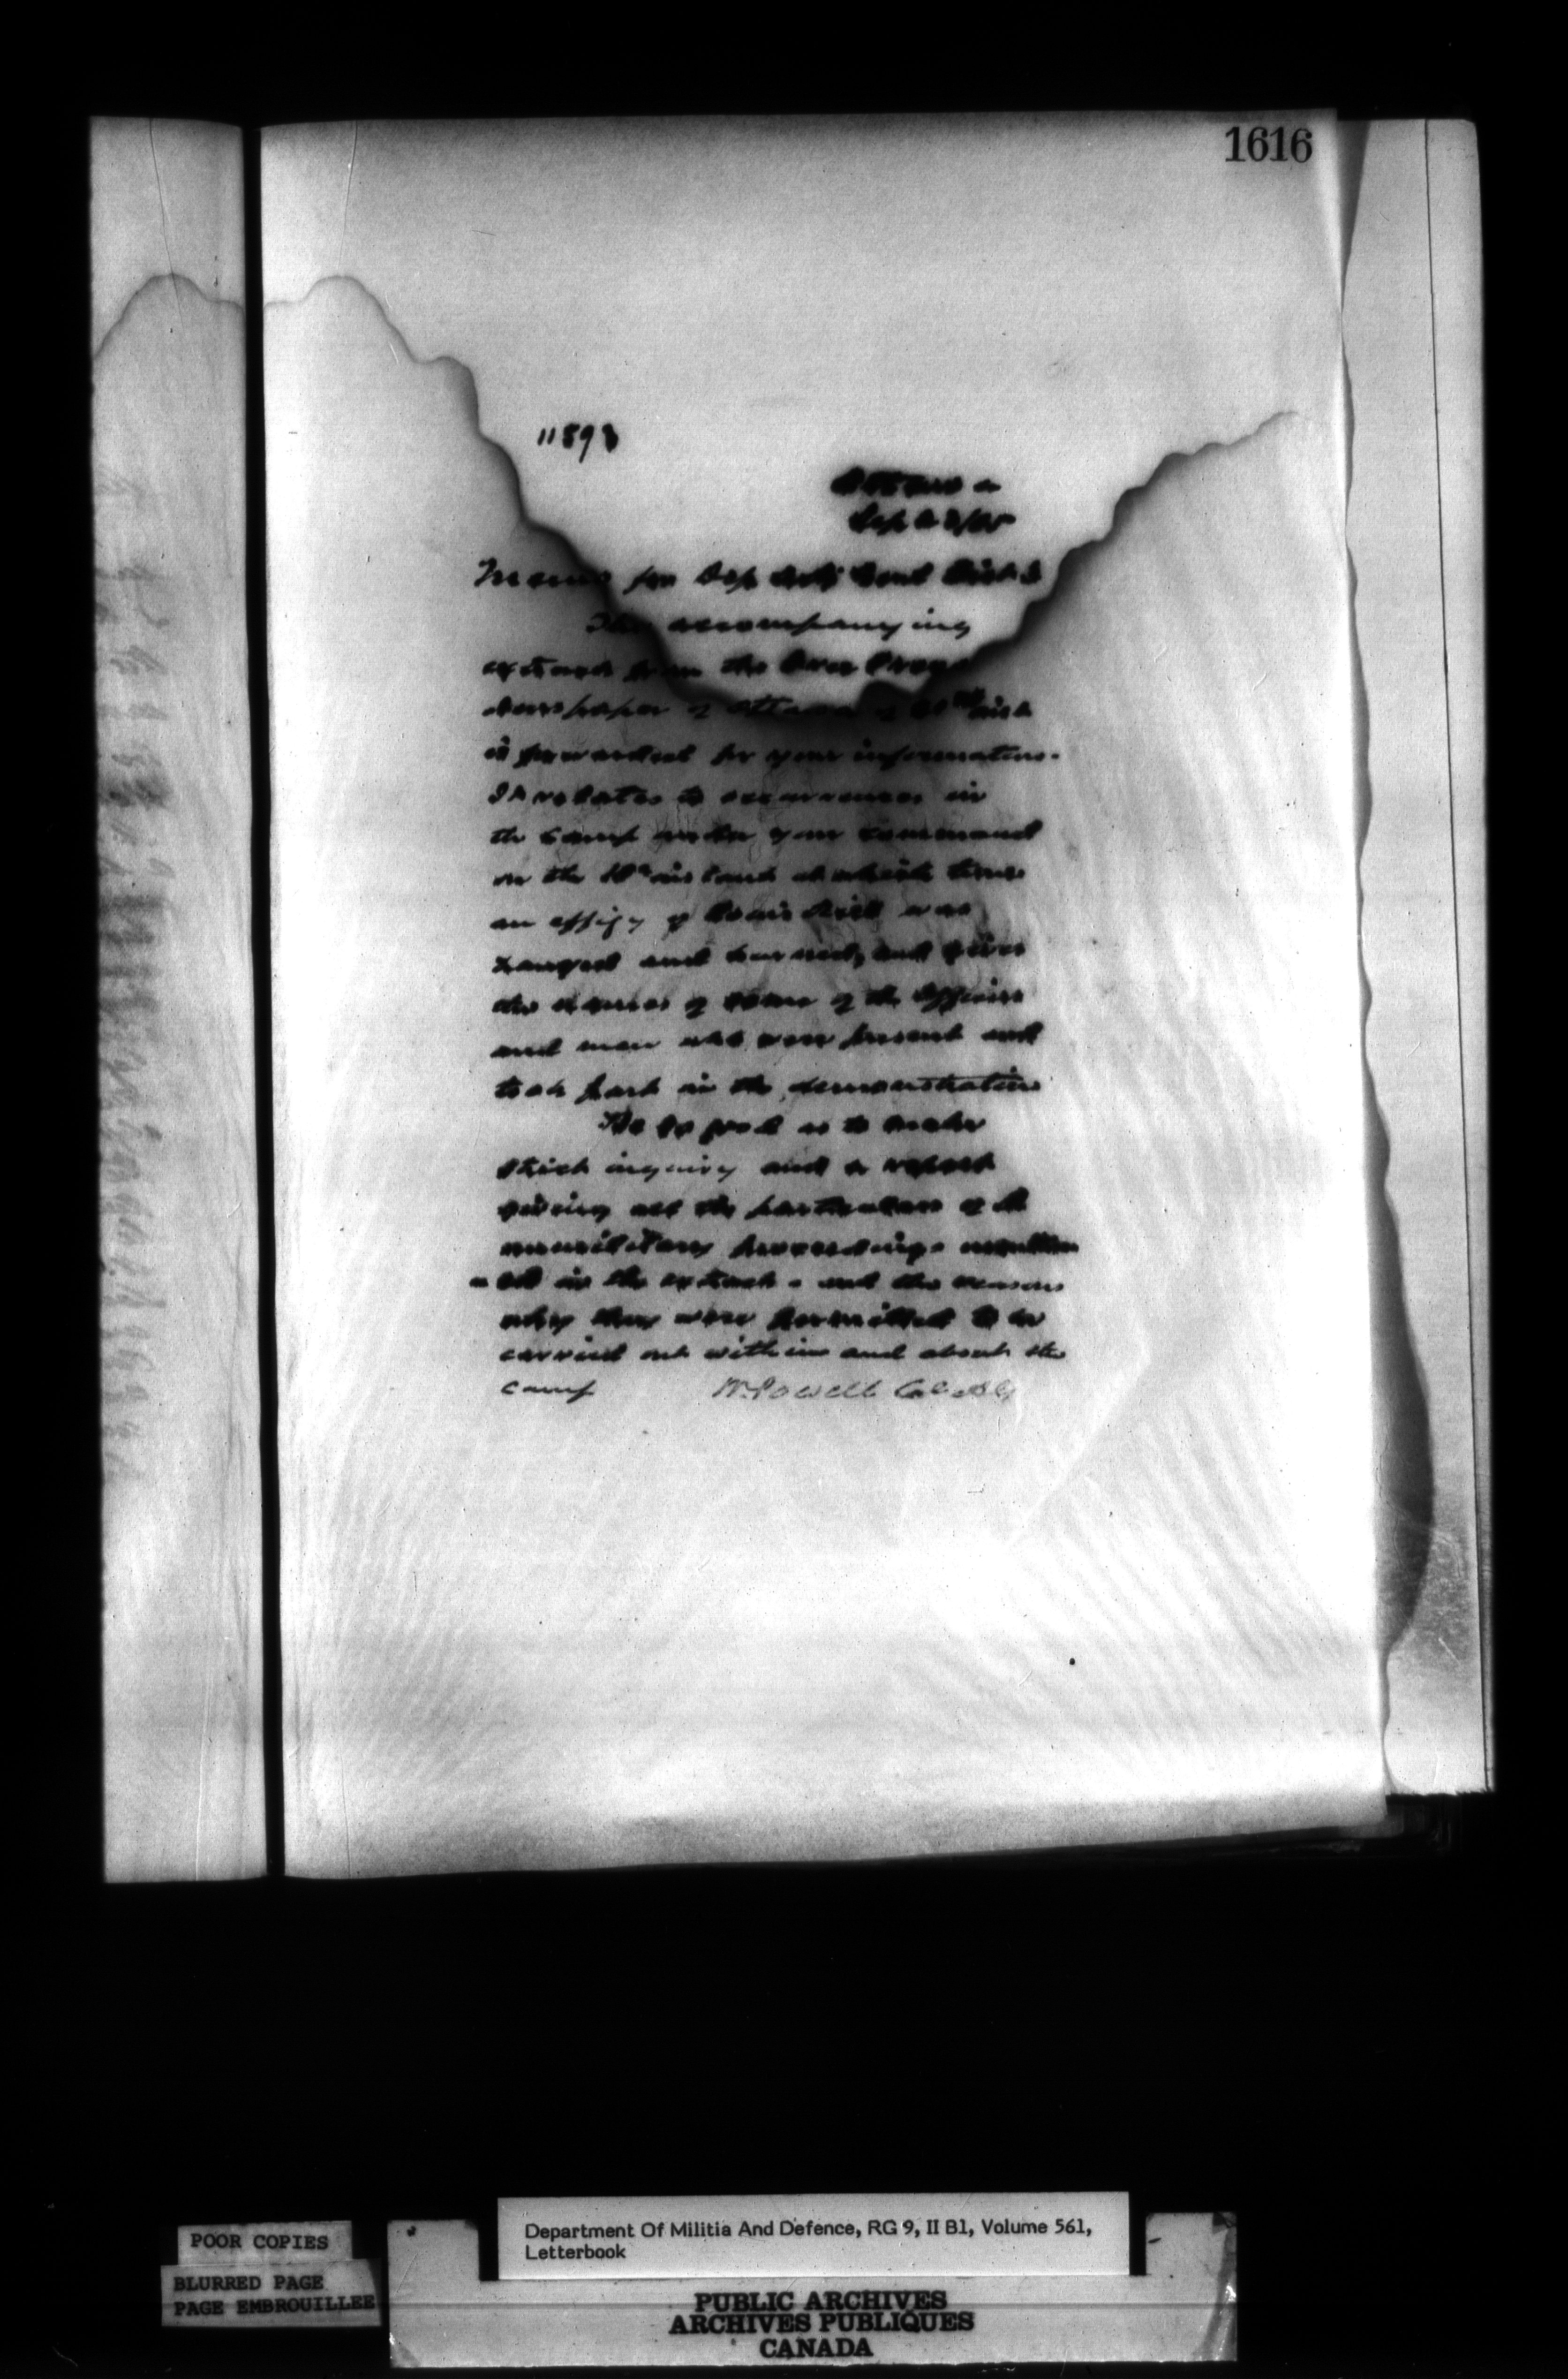 1616
11893
Ottawa
Sept 23/85
Memo for Dep Adjt Genl Dist
The accompanying
extract from the Free Press
Newspaper of Ottawa of inst
is forwarded for your information.
It relates to occurrences in
the camp under your command
on the instant at which time
an effigy of Louis Riel was
hanged and burned, and gives
the names of some of the officers
and men who were present and
took part in the demonstration
Be so good as to make
strict inquiry and a report
giving all the particulars of the
unmilitary proceedings mention
-ed in the extract - and the reasons
why they were permitted to be
carried out within and about the
camp W. Powell Col. AG
POOR COPIES
BLURRED PAGE
PAGE EMBROUILLEE
Department Of Militia And Defence, RG 9, II B1, Volume 561,
Letterbook
PUBLIC ARCHIVES
ARCHIVES PUBLIQUES
CANADA